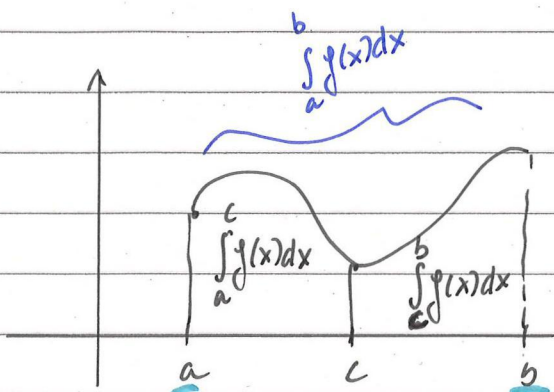 ∫_a^b f(x)dx
∫_a^c f(x)dx
∫_c^b f(x)dx
a c b